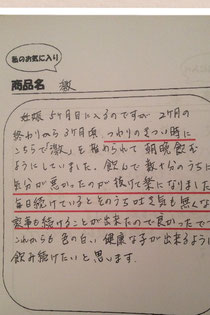 私のお気に入り
商品名 激
妊娠5ヶ月目に入るのですが 2ヶ月の
終わりから3ヶ月頃、つわりのきつい時に
こちらで「激」を勧められて 朝晩飲む
ようにしていました。飲んで数十分のうちに
気分が悪かったのが抜けて楽になりました
毎日続けているとそのうち吐き気も無く
家事も続けることが出来たので良かったで
これからも色の白い健康な子が出来るように
飲み続けたいと思います.